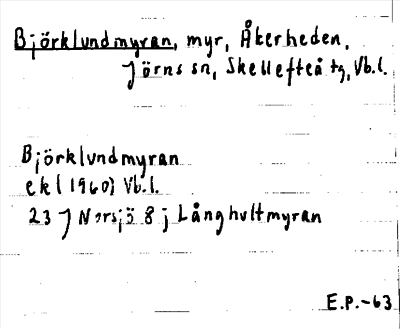 Björklundmyran, myr, Åkerheden,
Jörns sn, Skellefteå tg, Vb.l.
Björklundmyran
ekl (1960) Vb.l.
23 J Norsjö 8 j Långhultmyran
E.P.-63